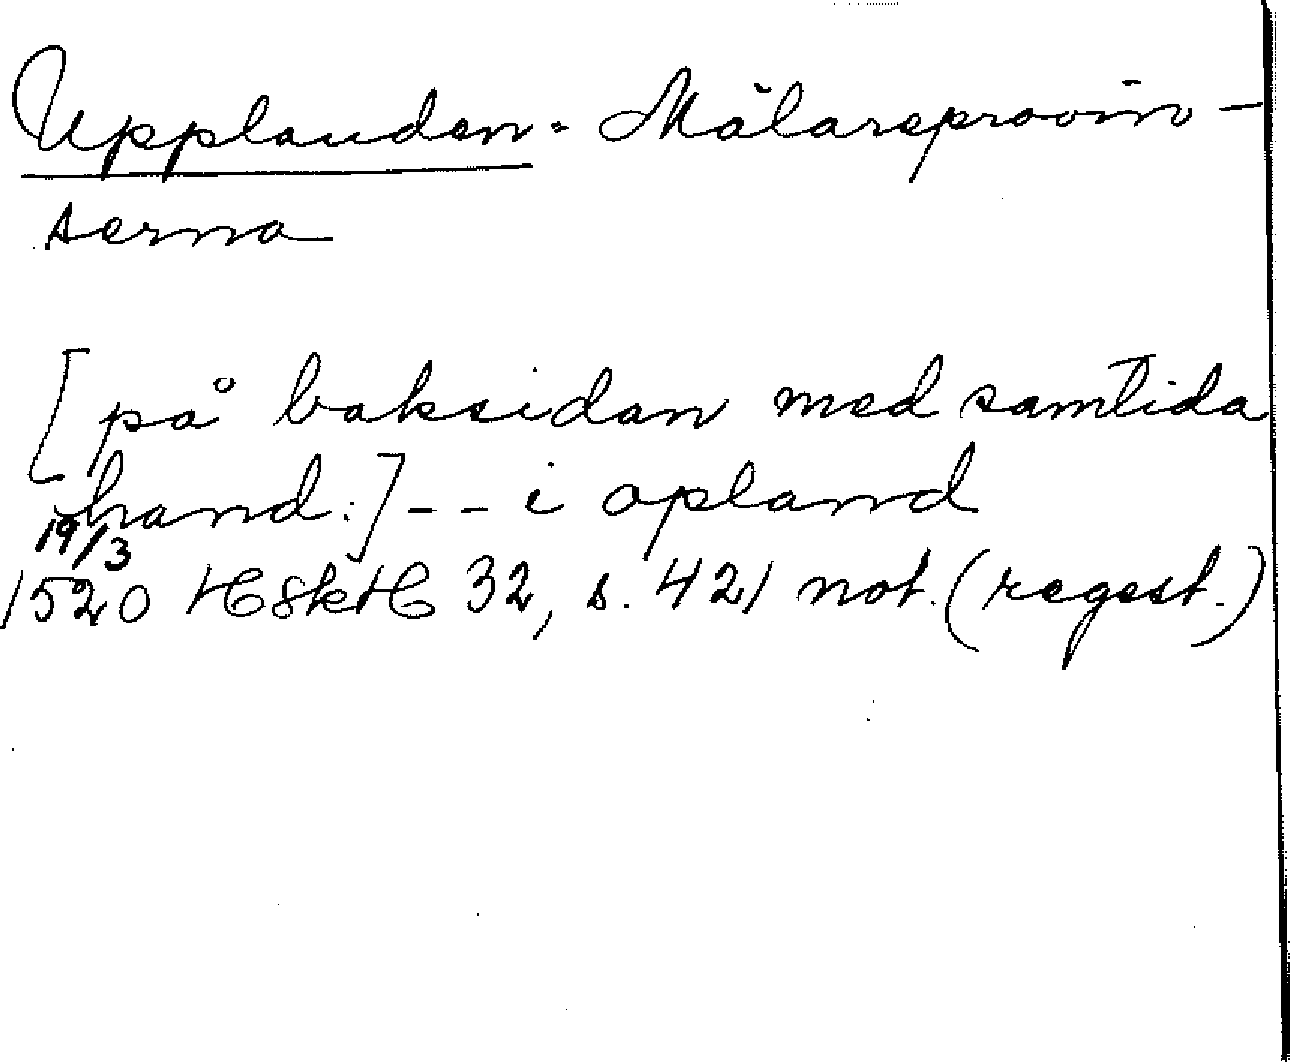 Upplanden = Mälareprovin-
serna
[på baksidan med samtida
hand:] -- i opland
19/3
1520 HSkH 32, s. 421 not. (regest.)